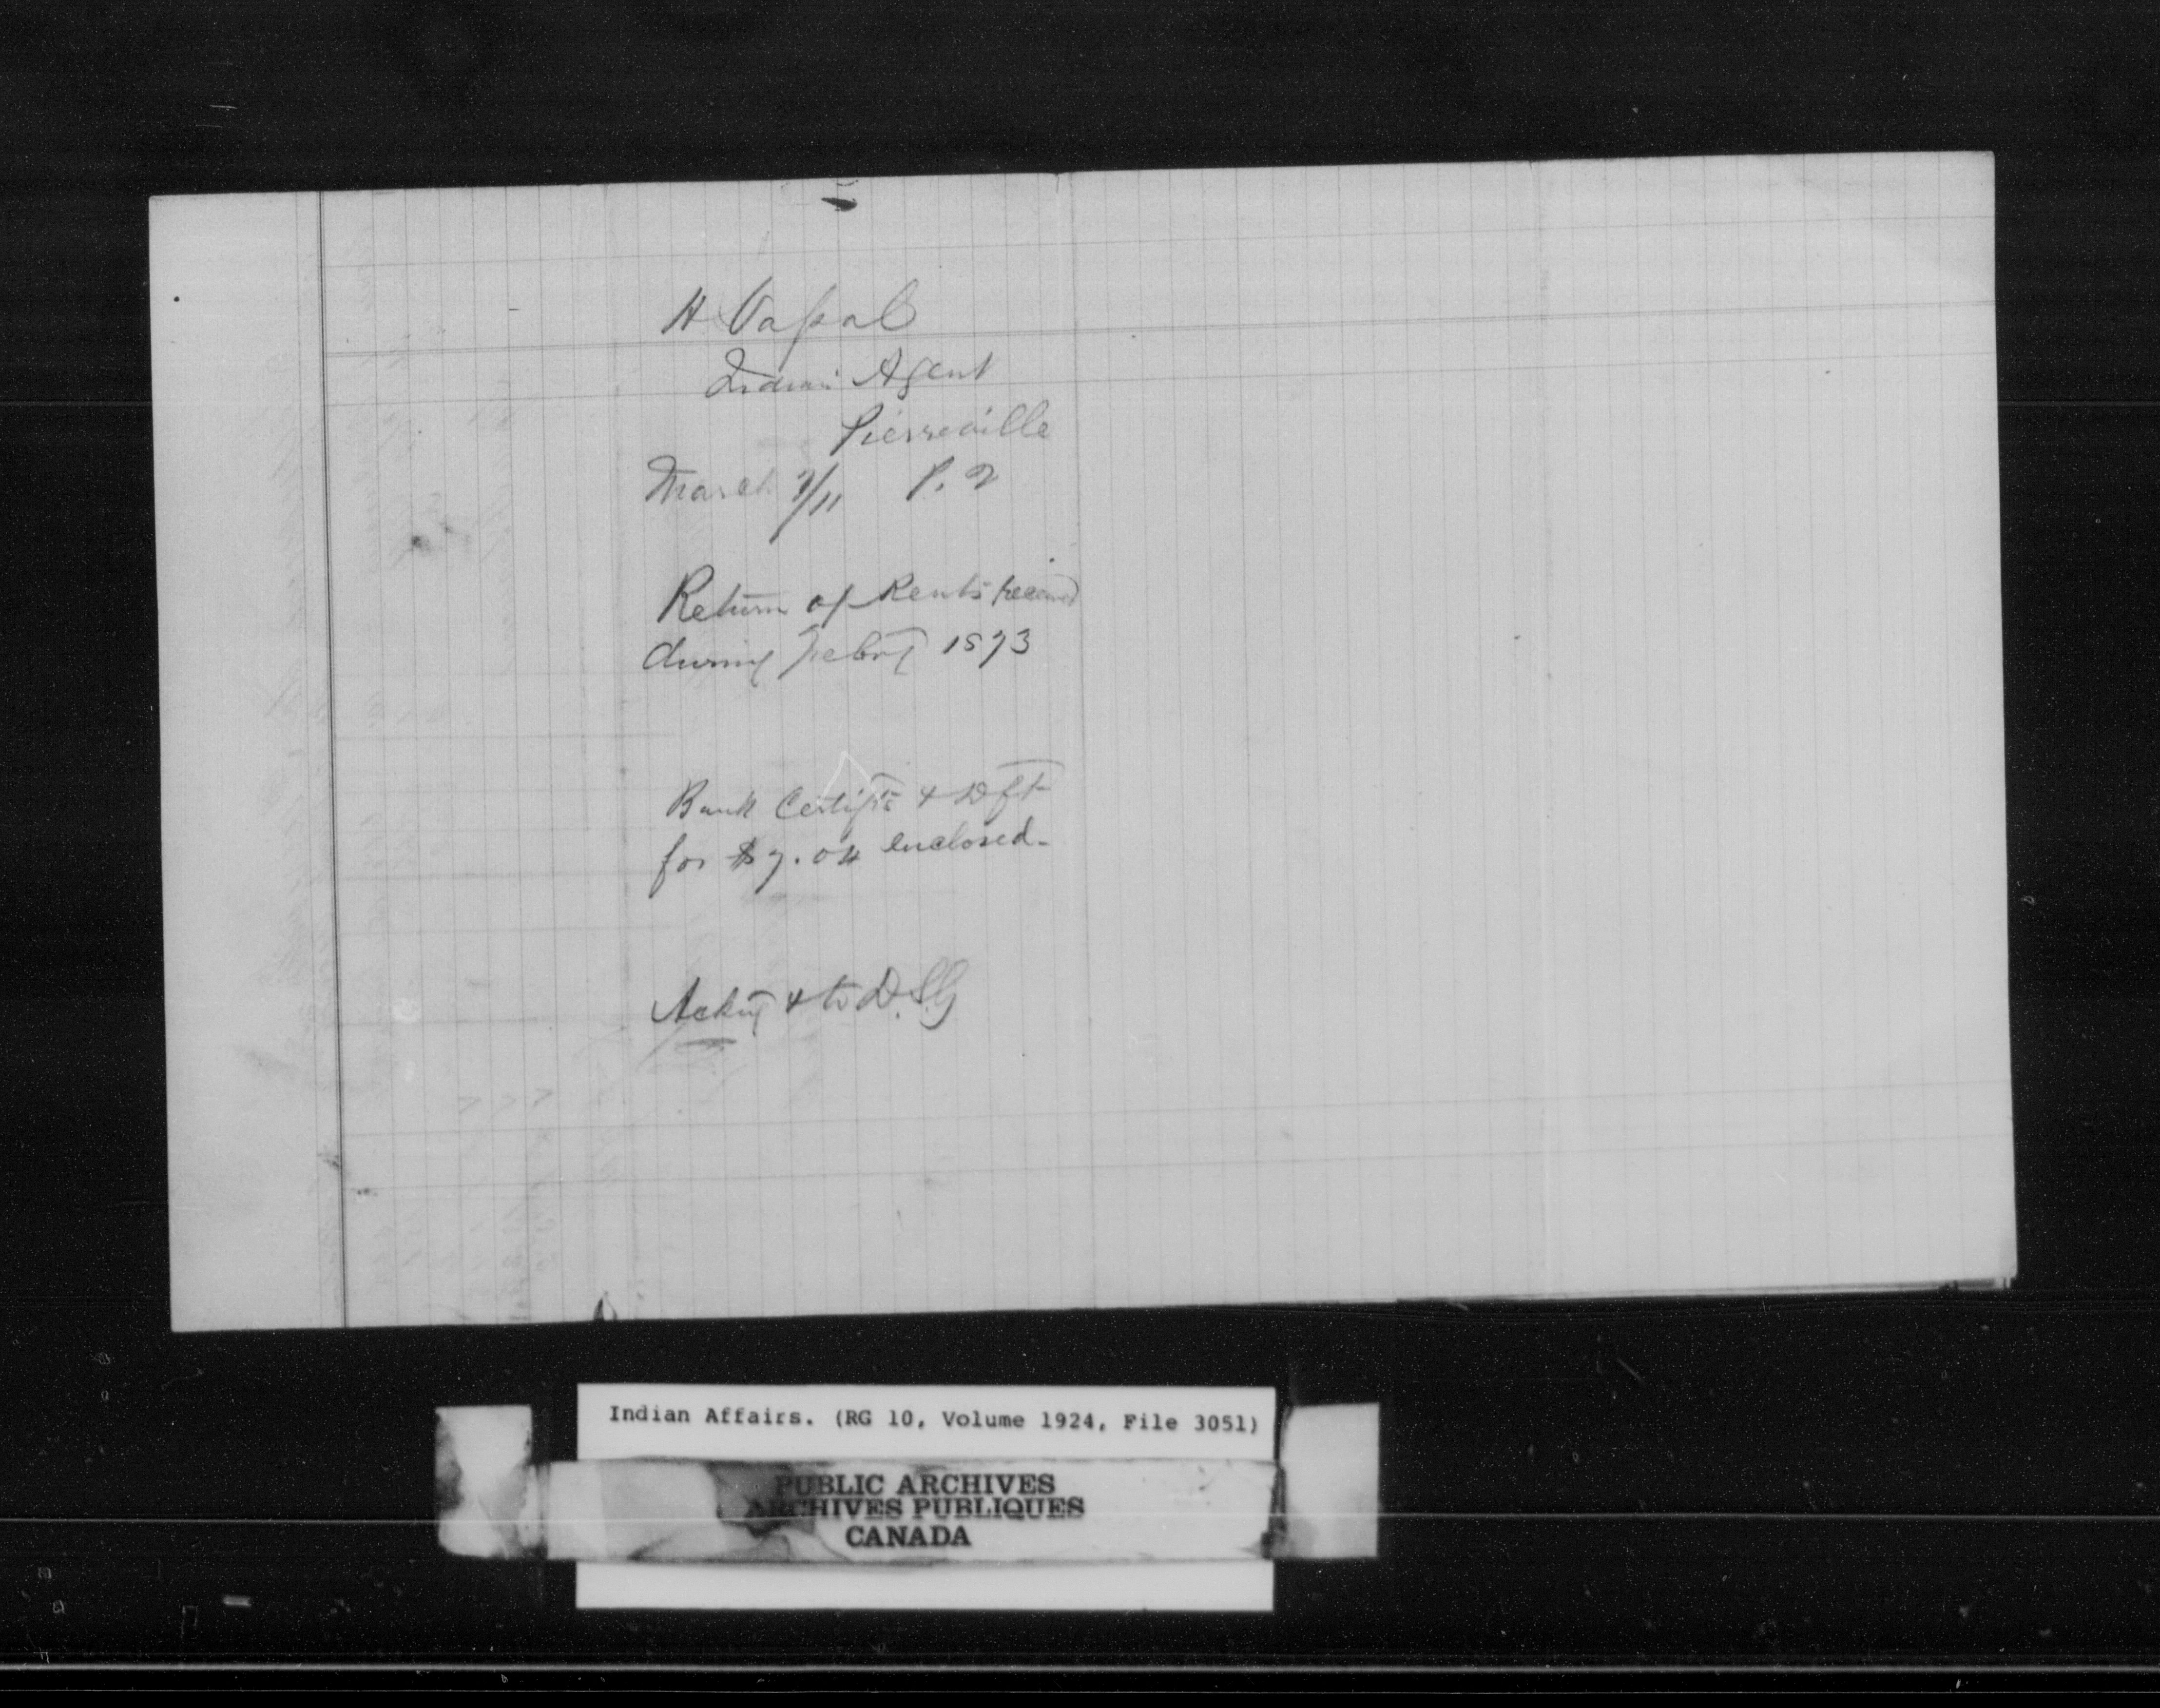 H Vassal
Indian Agent
Pierreville
March 7/11 P. Q
Return of Rents received
during Feby 1873
Bank Certifte & Dft
for $7.04 enclosed.
Ackg & to D.S.G
Indian Affairs. (RG 10, Volume 1924, File 3051)
PUBLIC ARCHIVES
ARCHIVES PUBLIQUES
CANADA